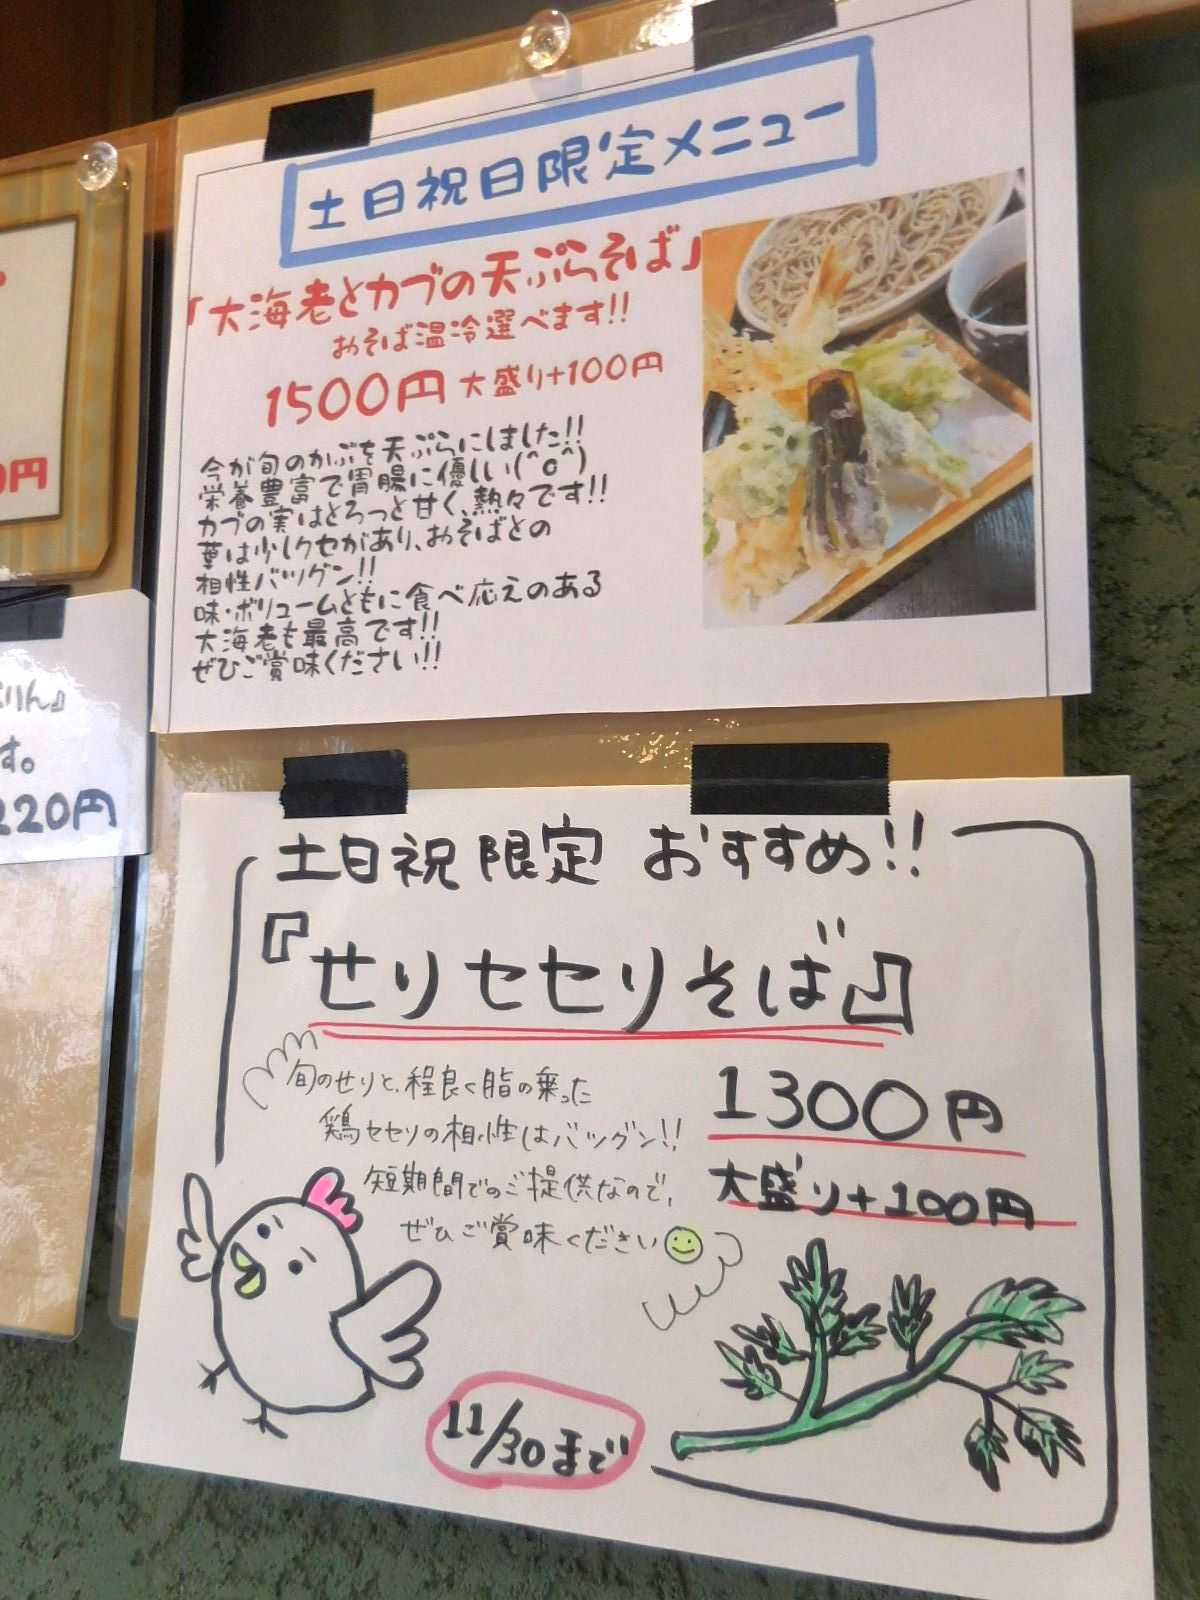 土日祝日限定メニュー
「大海老とカブの天ぷらそば」
おそば温冷選べます!!
1500円 大盛り+100円
今が旬のかぶを天ぷらにしました!!
栄養豊富で胃腸に優しい(^o^)
カブの実はとろっと甘く、熱々です!!
葉は少しクセがあり、おそばとの
相性バツグン!!
味・ボリュームともに食べ応えのある
大海老も最高です!!
ぜひご賞味ください!!
0円
ぷりん』
す。
220円
土日祝限定 おすすめ!!
『せりセセリそば』
旬のせりと、程良く脂の乗った
鶏セセリの相性はバツグン!!
短期間でのご提供なので、
ぜひご賞味ください
1300円
大盛り+100円
11/30まで